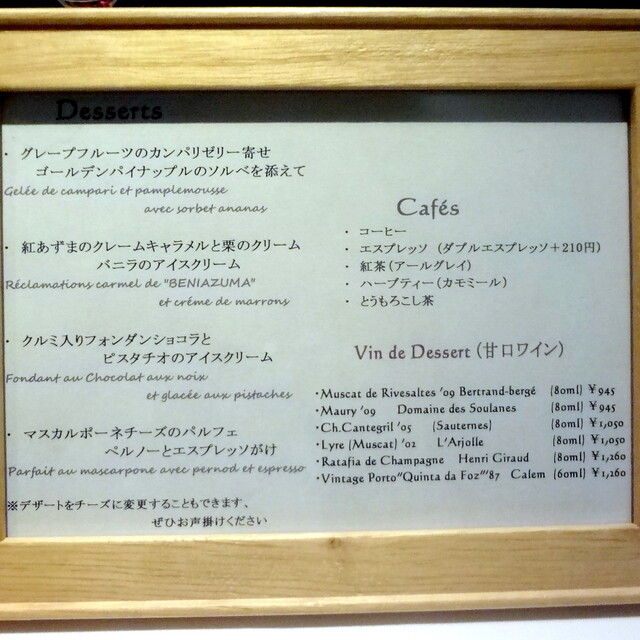 Desserts
・ グレープフルーツのカンパリゼリー寄せ
ゴールデンパイナップルのソルベを添えて
Gelée de campari et pamplemousse
avec sorbet ananas
・ 紅あずまのクレームキャラメルと栗のクリーム
バニラのアイスクリーム
Réclamations carmel de "BENIAZUMA"
et créme de marrons
・ クルミ入りフォンダンショコラと
ピスタチオのアイスクリーム
Fondant au Chocolat aux noix
et glacée aux pistaches
・ マスカルポーネチーズのパルフェ
ペルノーとエスプレッソがけ
Parfait au mascarpone avec pernod et espresso
※デザートをチーズに変更することもできます、
ぜひお声掛けください
Cafés
・ コーヒー
・ エスプレッソ （ダブルエスプレッソ＋210円）
・ 紅茶（アールグレイ）
・ ハーブティー（カモミール）
・ とうもろこし茶
Vin de Dessert（甘口ワイン）
・Muscat de Rivesaltes '09 Bertrand-bergé (80ml) ￥945
・Maury '09 Domaine des Soulanes (80ml) ￥945
・Ch.Cantegril '05 (Sauternes) (80ml) ￥1,050
・Lyre (Muscat) '02 L'Arjolle (80ml) ￥1,050
・Ratafia de Champagne Henri Giraud (80ml) ￥1,260
・Vintage Porto"Quinta da Foz"'87 Calem (60ml) ￥1,260